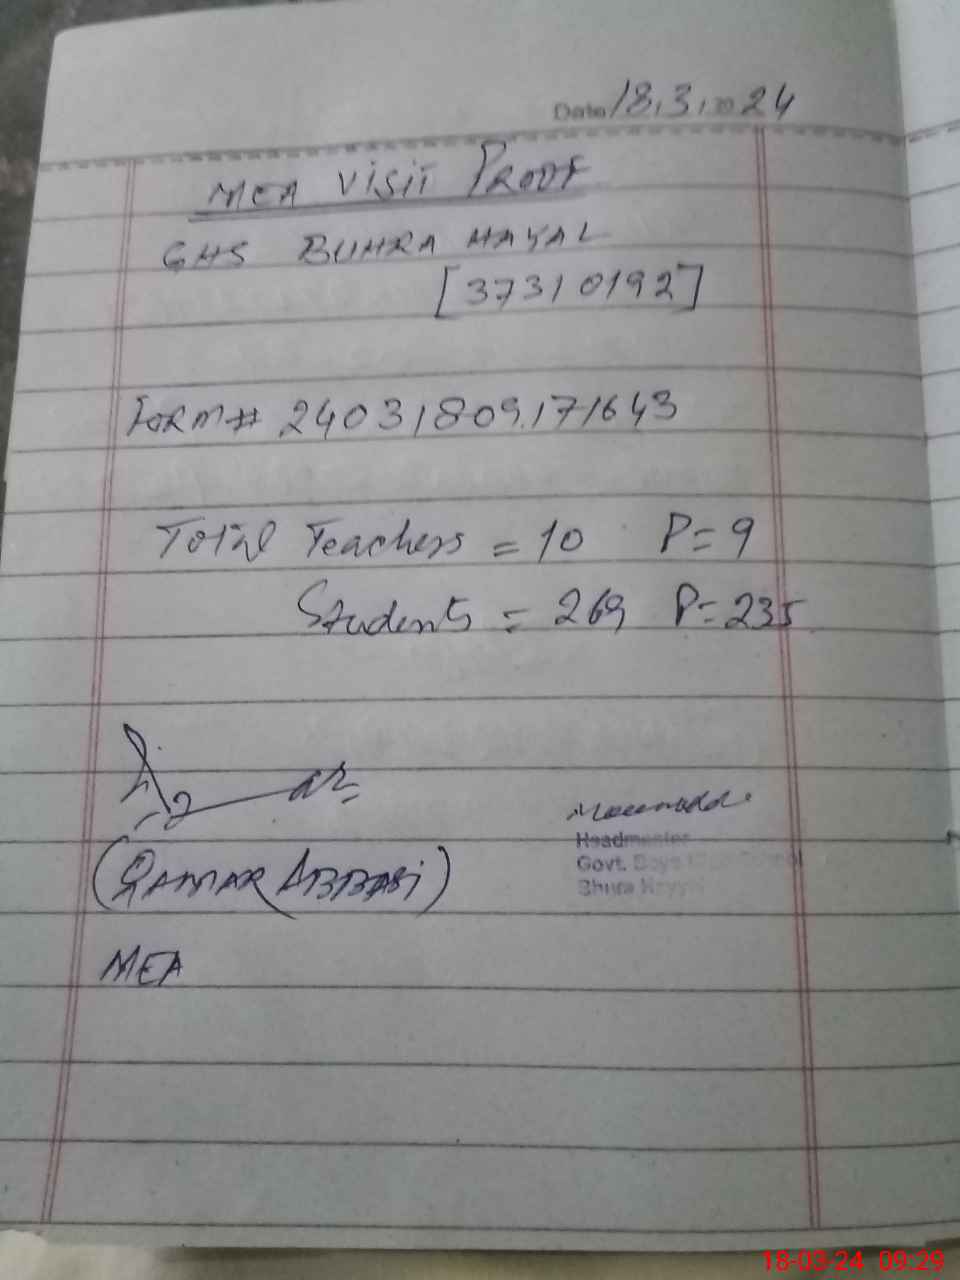 Date 18.3.2024
MEA VISIT PROOF
GHS BUHRA HAYAL
[37310192]
FORM# 24031809171643
Total Teachers = 10 P=9
Students = 269 P=235
(QAMAR ABBASI)
MEA
Headmaster
Govt. Boys High School
Bhura Hayyal
18-03-24 09:29